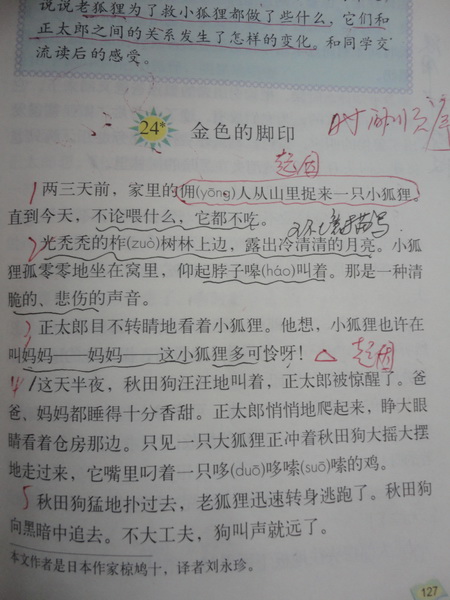 说说老狐狸为了救小狐狸都做了些什么，它们和
正太郎之间的关系发生了怎样的变化。和同学交
流读后的感受。
24* 金色的脚印
起因
1 两三天前，家里的佣(yōng)人从山里捉来一只小狐狸。
直到今天，不论喂什么，它都不吃。
环境描写
2 光秃秃的柞(zuò)树林上边，露出冷清清的月亮。小狐
狸孤零零地坐在窝里，仰起脖子嗥(háo)叫着。那是一种清
脆的、悲伤的声音。
3 正太郎目不转睛地看着小狐狸。他想，小狐狸也许在
叫妈妈——妈妈——这小狐狸多可怜呀！ △ 起因
4 这天半夜，秋田狗汪汪地叫着，正太郎被惊醒了。爸
爸、妈妈都睡得十分香甜。正太郎悄悄地爬起来，睁大眼
睛看着仓房那边。只见一只大狐狸正冲着秋田狗大摇大摆
地走过来，它嘴里叼着一只哆(duō)哆嗦(suō)嗦的鸡。
5 秋田狗猛地扑过去，老狐狸迅速转身逃跑了。秋田狗
向黑暗中追去。不大工夫，狗叫声就远了。
本文作者是日本作家椋鸠十，译者刘永珍。
127